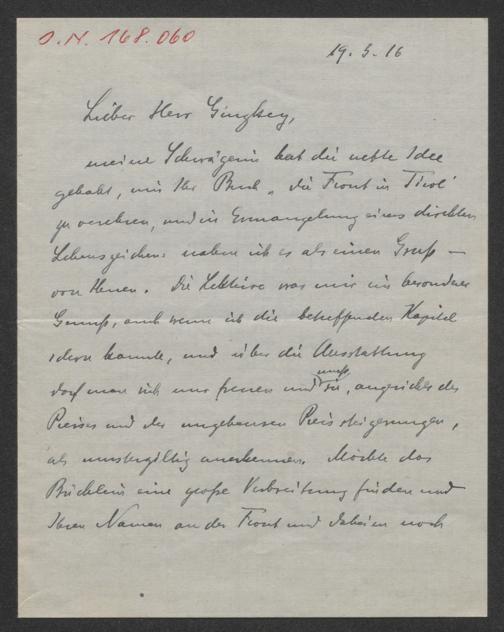 J.N. 168.060
19. 5. 16
Lieber Herr Ginzkey,
meine Schwägerin hat die nette Idee
gehabt, mir Ihr Buch „Die Front in Tirol"
zu verehren, und in Ermangelung eines direkten
Lebenszeichens nahm ich es als einen Gruß —
von Ihnen. Die Lektüre war mir ein besonderer
Genuß, auch wenn ich die betreffenden Kapitel
schon kannte, und über die Ausstattung
darf man sich nur freuen und muß sie, angesichts des
Preises und der ungeheuren Preissteigerungen,
als mustergültig anerkennen. Möchte das
Büchlein eine große Verbreitung finden und
Ihren Namen an der Front und daheim noch